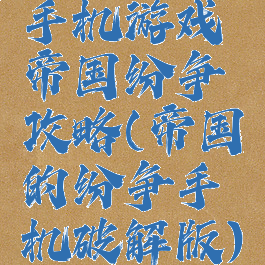 手机游戏
帝国纷争
攻略(帝国
的纷争手
机破解版)